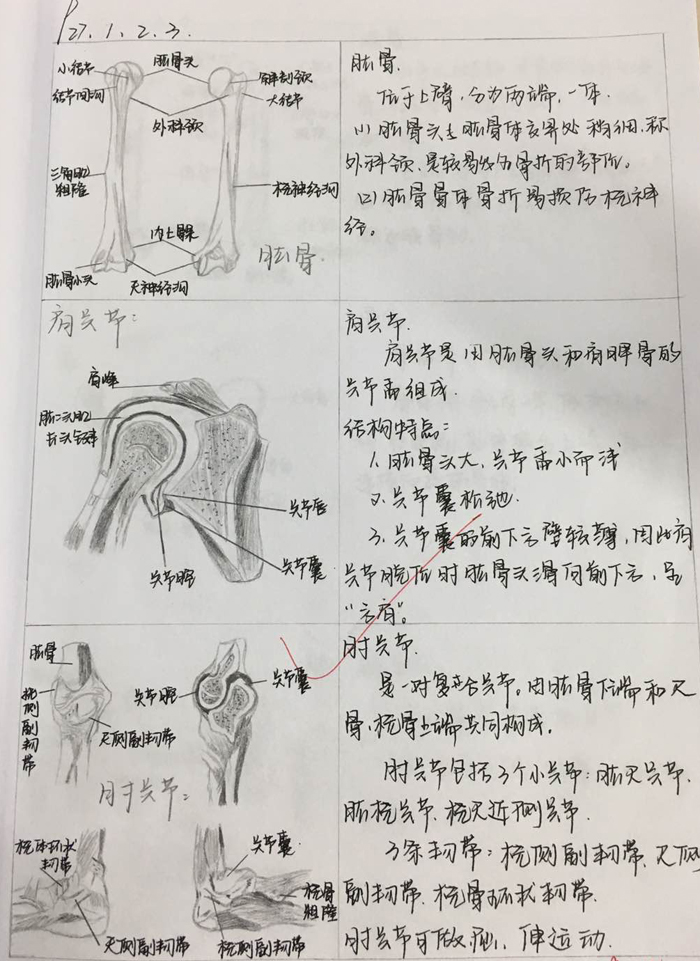 P27.1.2.3.
小结节
肱骨头
解剖颈
结节间沟
大结节
外科颈
三角肌
粗隆
桡神经沟
内上髁
肱骨小头
尺神经沟
肱骨.
肱骨.
位于上臂,分为两端,一体.
(1)肱骨头与肱骨体交界处稍细,称
外科颈,是较易发生骨折的部位。
(2)肱骨骨体骨折易损伤桡神
经。
肩关节:
肩峰
肱二头肌
长头腱
关节唇
关节腔
关节囊
肩关节.
肩关节是由肱骨头和肩胛骨的
关节面组成.
结构特点:
1.肱骨头大,关节面小而浅
2.关节囊松弛.
3.关节囊的前下方壁较薄,因此肩
关节脱位时肱骨头滑向前下方,呈
“方肩”。
肱骨
桡侧副韧带
尺侧副韧带
关节腔
关节囊
肘关节:
桡骨环状
韧带
关节囊
桡骨
粗隆
尺侧副韧带
桡侧副韧带
肘关节.
是一对复合关节。由肱骨下端和尺
骨、桡骨上端共同构成.
肘关节包括3个小关节:肱尺关节、
肱桡关节、桡尺近侧关节.
3条韧带:桡侧副韧带、尺侧
副韧带、桡骨环状韧带.
肘关节可做屈、伸运动.